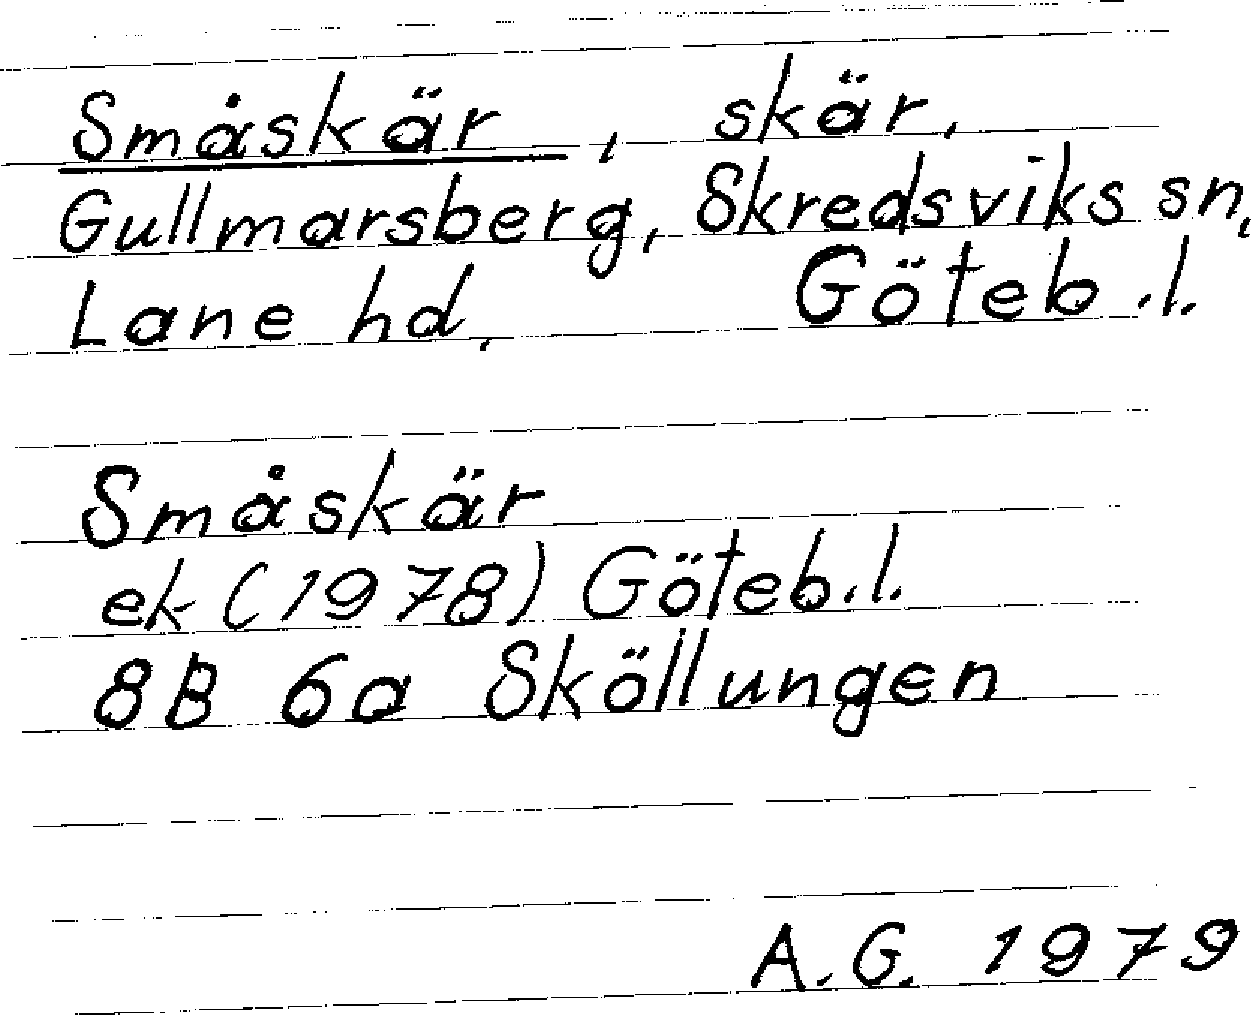 Småskär, skär,
Gullmarsberg, Skredsviks sn,
Lane hd, Göteb.l.
Småskär
ek (1978) Göteb.l.
8B 6a Sköllungen
A.G. 1979